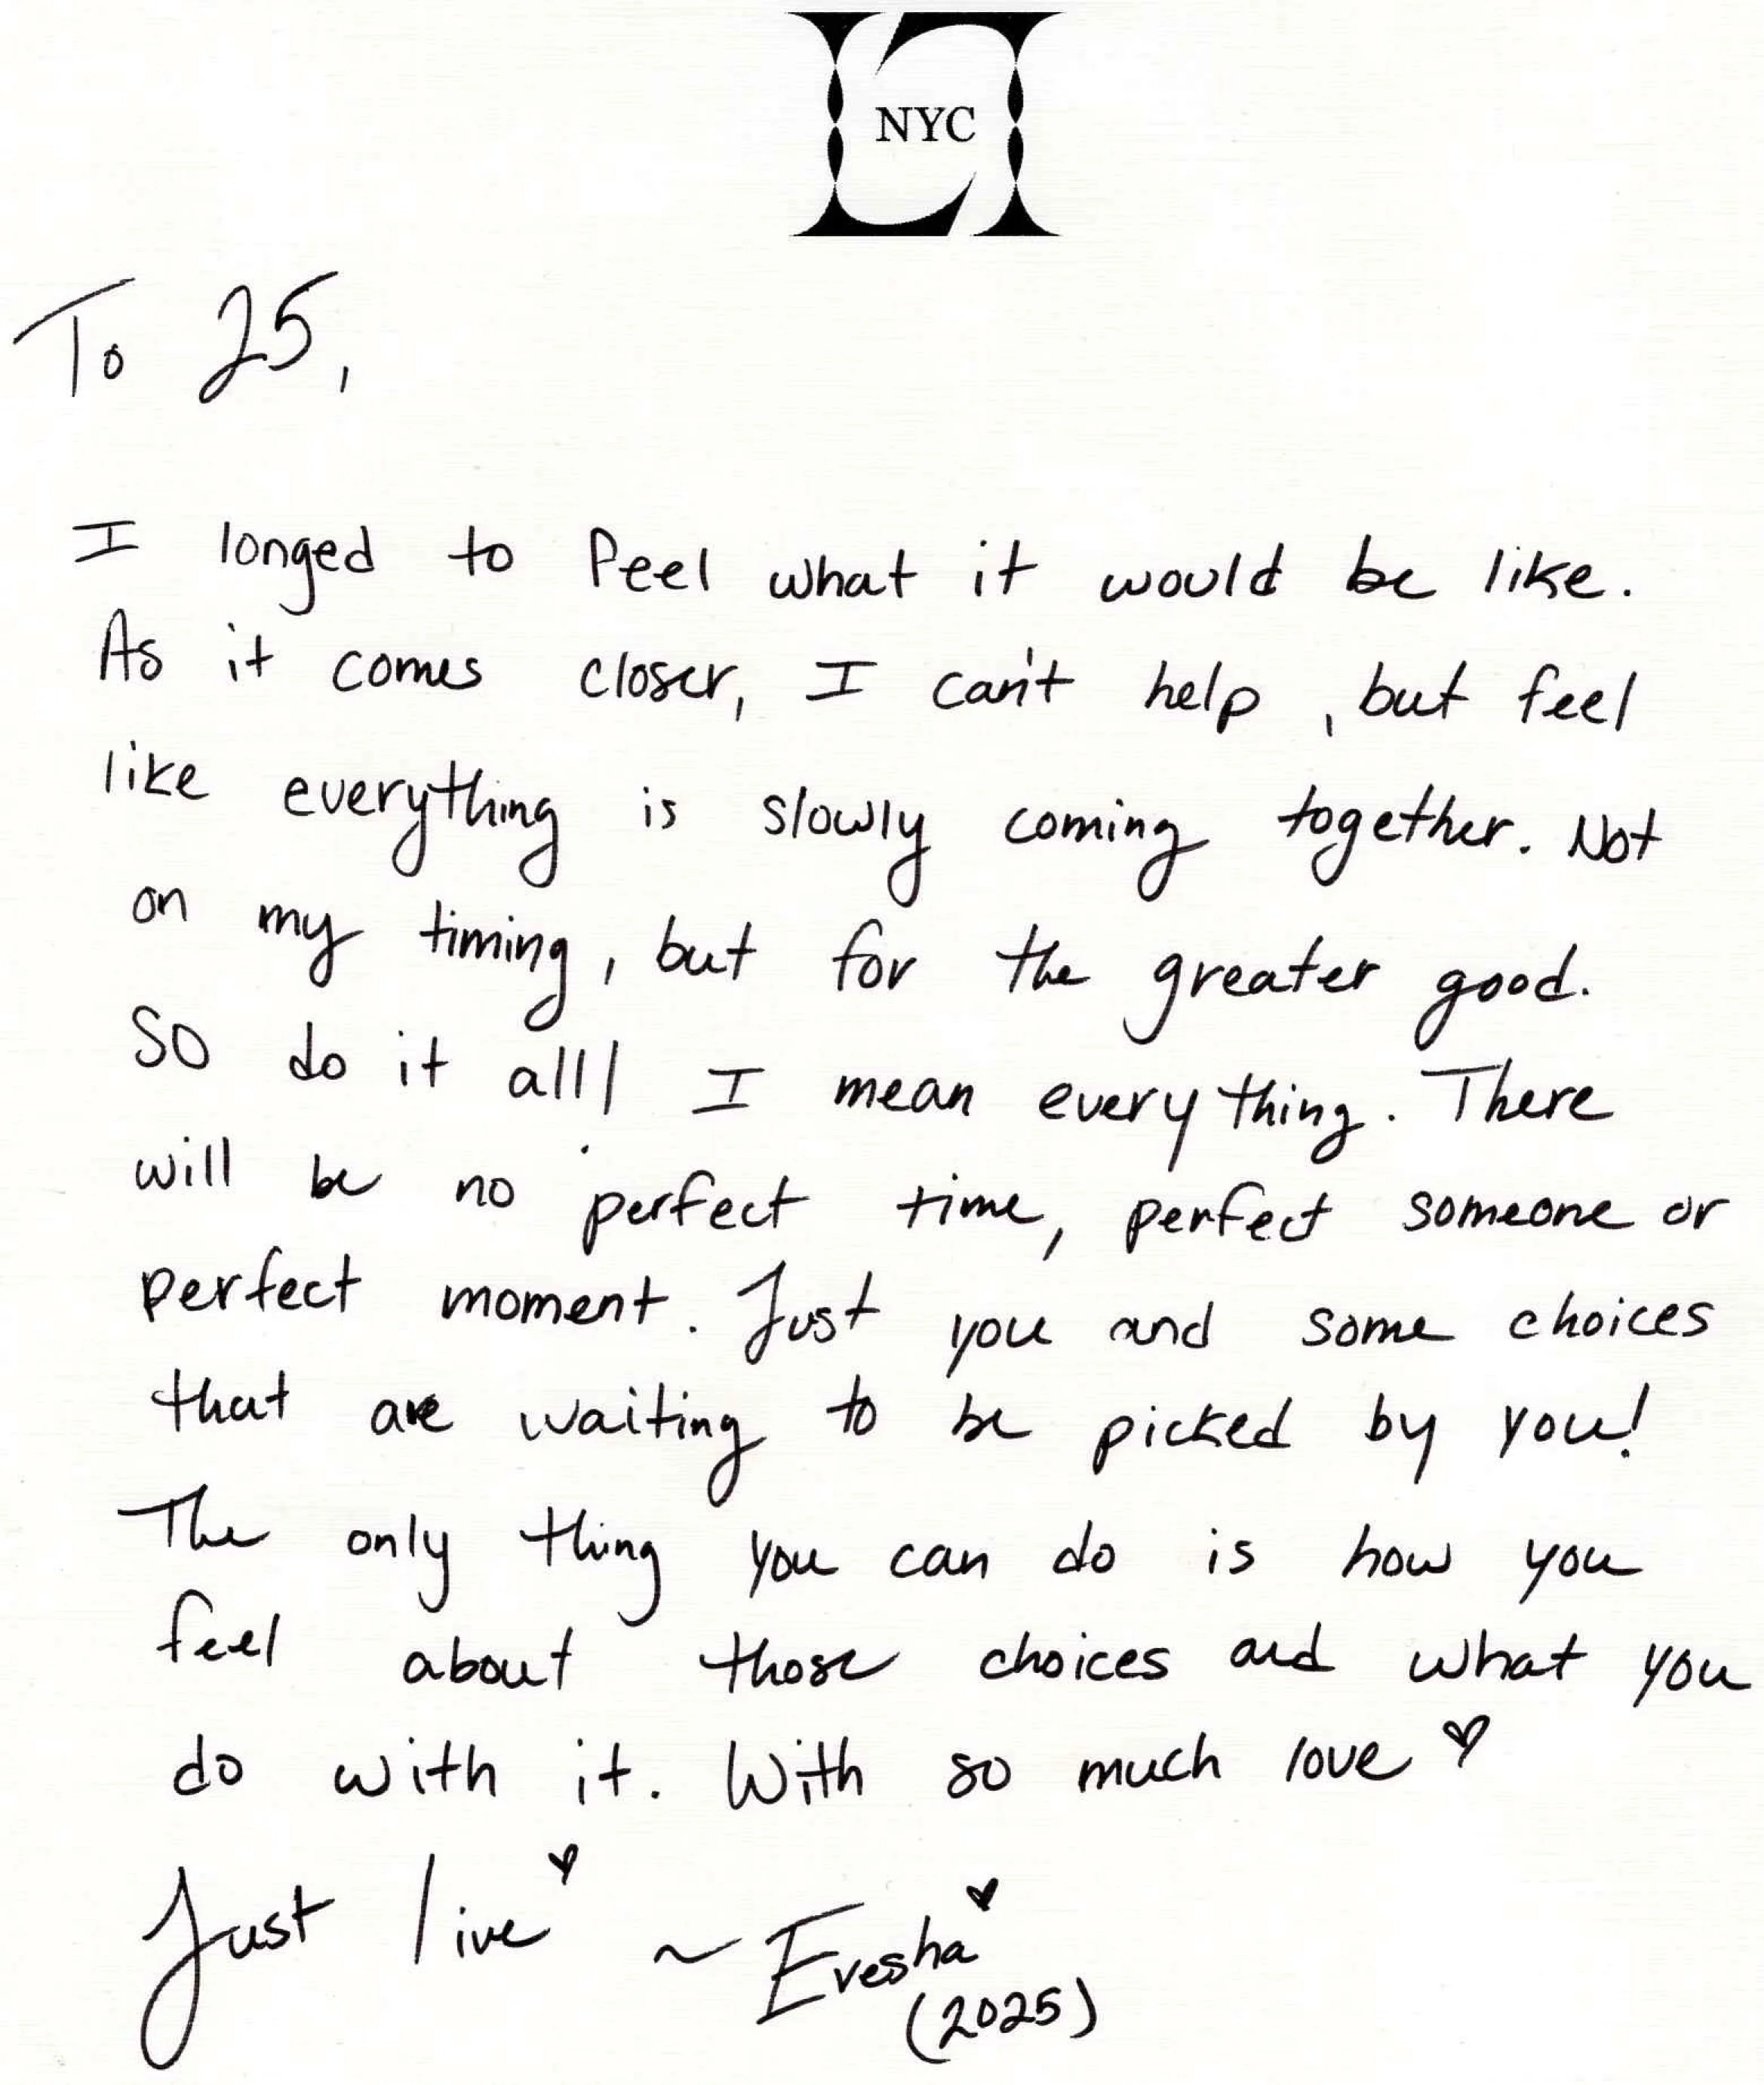 NYC
To 25,
I longed to feel what it would be like.
As it comes closer, I can't help, but feel
like everything is slowly coming together. Not
on my timing, but for the greater good.
So do it all! I mean everything. There
will be no perfect time, perfect someone or
perfect moment. Just you and some choices
that are waiting to be picked by you!
The only thing you can do is how you
feel about those choices and what you
do with it. With so much love ♥
Just live ♥ ~ Evesha ♥
(2025)